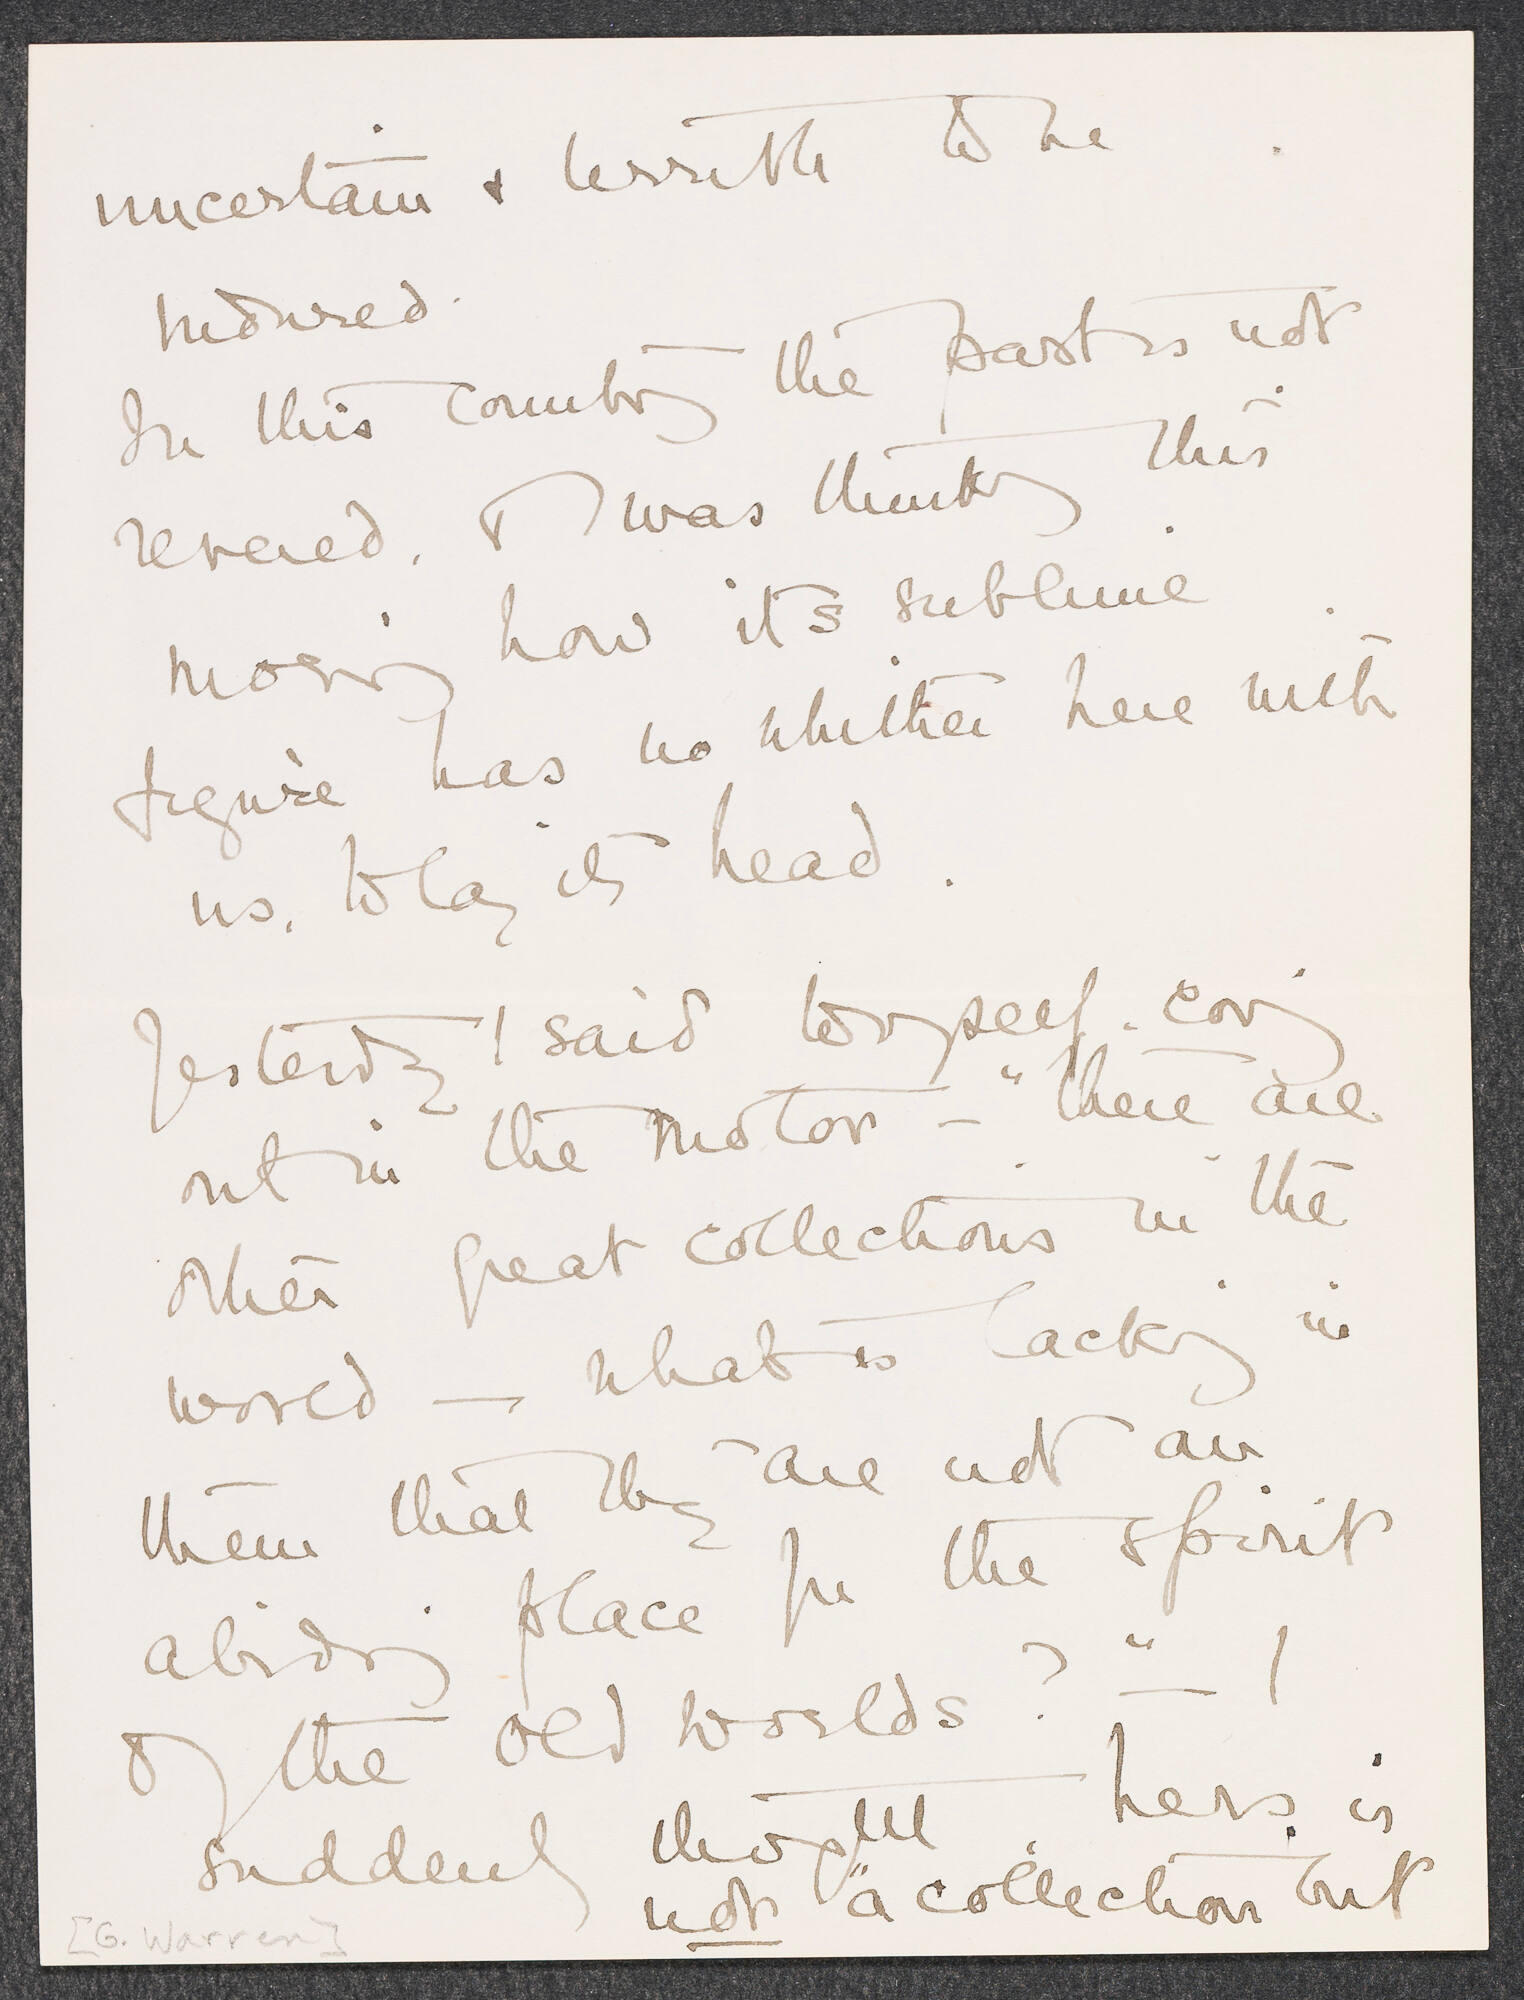 uncertain & terrible to be
endured.
In this country the past is not
revered. & I was thinking this
morning how it's sublime
figure has no whither here with
us, to lay its head.
Yesterday I said to myself. coming
out in the motor – "there are
other great collections in the
world — what is lacking in
them that they are not an
abiding place for the spirit
of the old worlds?" — I
suddenly thought, hers. is
not "a collection but
[G. Warren]